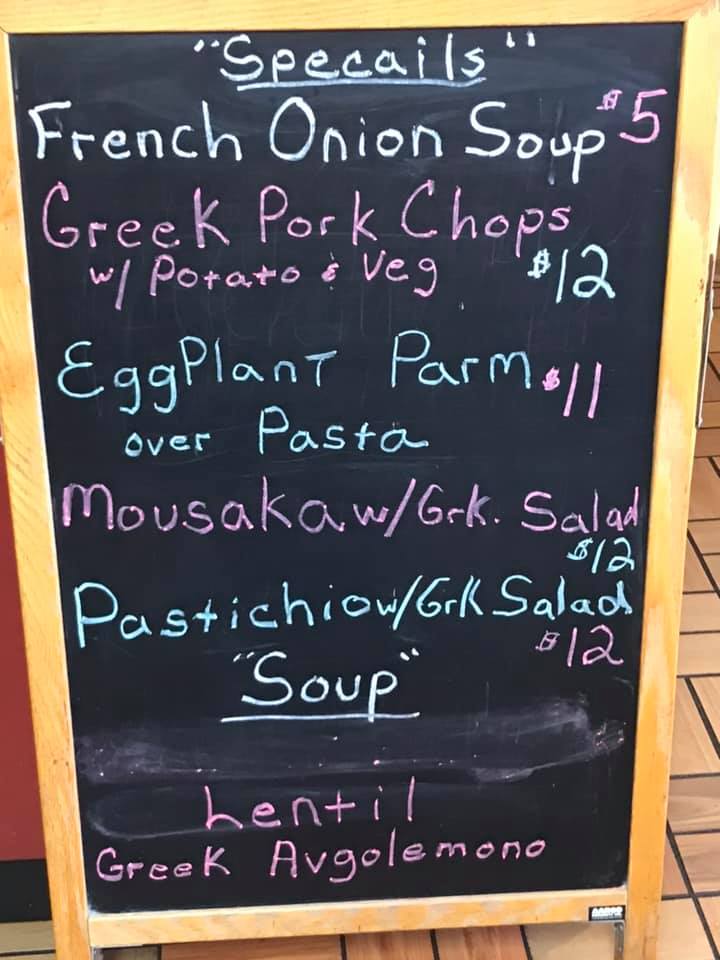 "Specails"
French Onion Soup $5
Greek Pork Chops
w/ Potato & Veg $12
EggPlant Parm $11
over Pasta
Mousaka w/Grk. Salad
$12
Pastichio w/Grk Salad
$12
"Soup"
Lentil
Greek Avgolemono